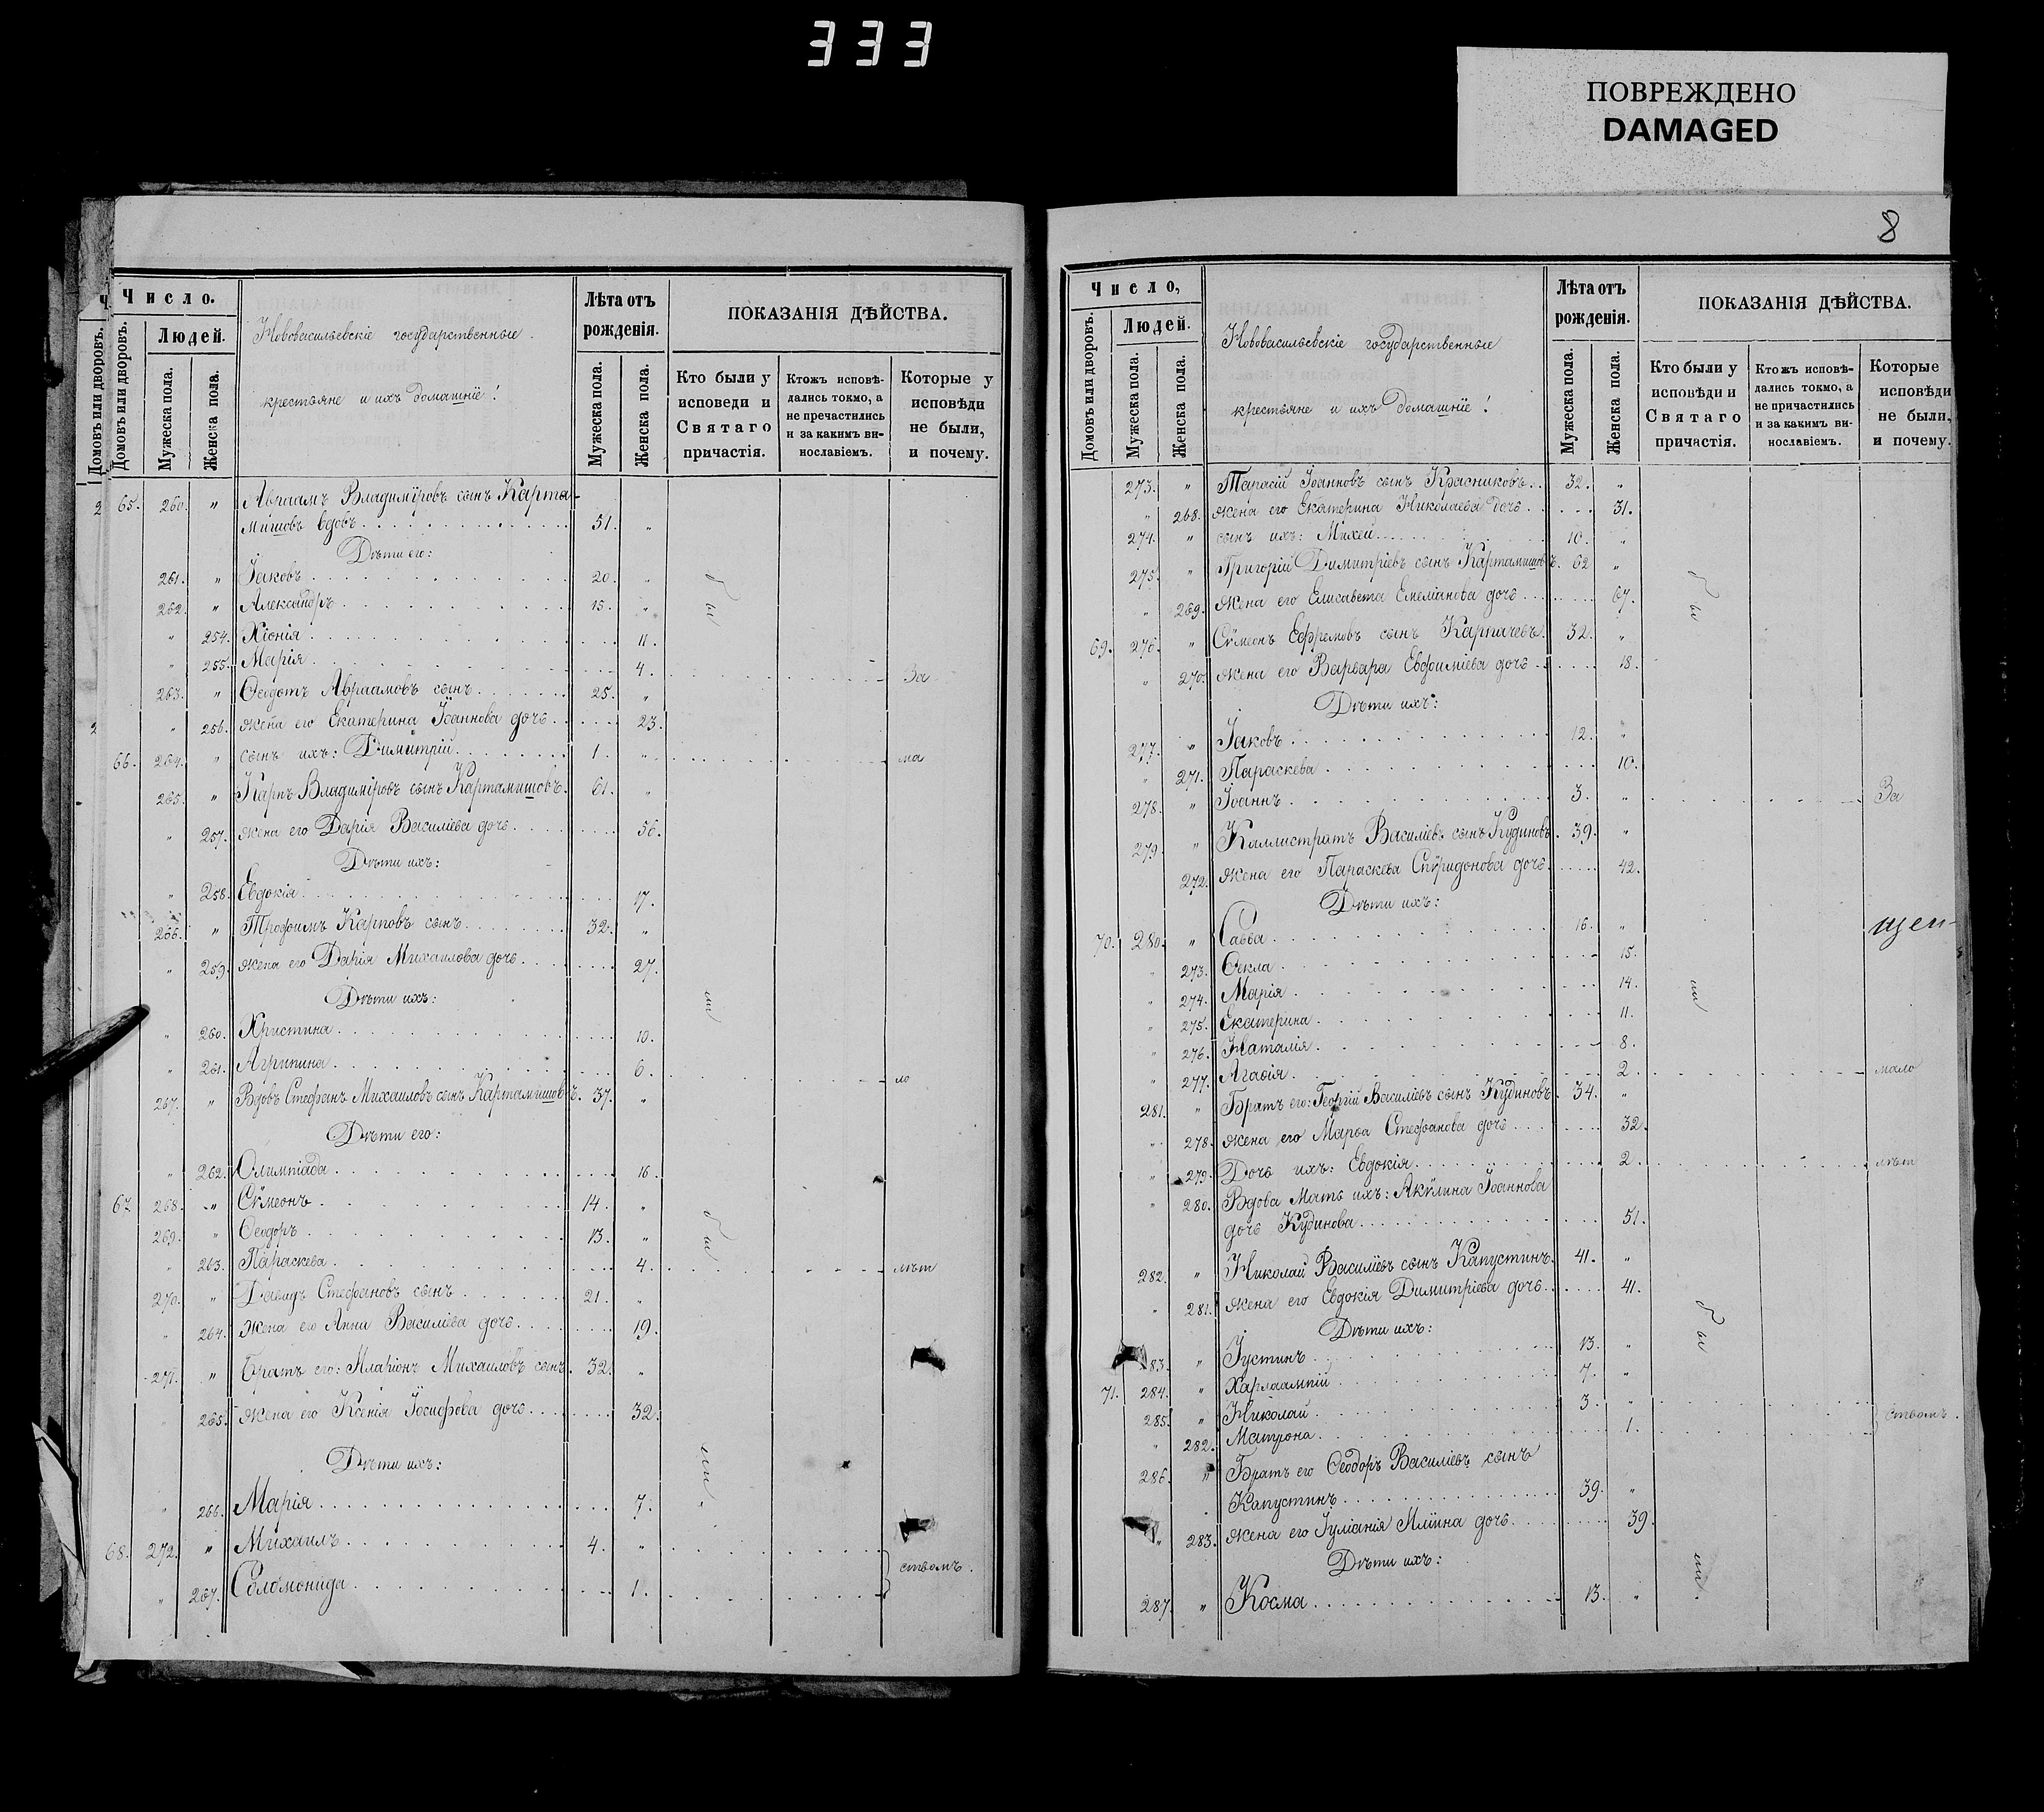 333
ПОВРЕЖДЕНО
DAMAGED
Число.
Домовъ или дворовъ.
Домовъ или дворовъ.
Людей.
Мужеска пола.
Женска пола.
Нововасильевскіе государственные
крестьяне и ихъ домашніе!
Лѣта отъ рожденія.
Мужеска пола.
Женска пола.
ПОКАЗАНІЯ ДѢЙСТВА.
Кто были у исповеди и Святаго причастія.
Ктожъ исповѣдались токмо, а не пречастились и за какимъ винославіемъ.
Которые у исповѣди не были, и почему.
65. 260. " Авраамъ Владиміровъ сынъ Карта-
мишовъ вдовъ 51. "
Дѣти его:
261. " Іаковъ 20. "
262. " Александръ 15. "
" 254. Хіонія 11.
" 255. Марія 4. За
263. " Ѳеодотъ Авраамовъ сынъ 25. "
" 256. жена его Екатерина Іоаннова дочь 23.
66. 264. " сынъ ихъ: Димитрій 1. " ма
265. " Карпъ Владиміровъ сынъ Картамишовъ. 61. "
" 257. жена его Дарія Василіева дочь 56.
Дѣти ихъ:
" 258. Евдокія 17.
266. " Трофимъ Карповъ сынъ 32. "
" 259. жена его Дарія Михаилова дочь 27.
Дѣти ихъ:
" 260. Христина 10.
" 261. Агрипина 6. ло
267. " Вдовъ Стефанъ Михаиловъ сынъ Картамишовъ. 37. "
Дѣти его:
" 262. Олимпіада 16.
67. 268. " Сѵмеонъ 14. "
269. " Ѳеодоръ 13. "
" 263. Параскева 4. лѣт
270. " Давидъ Стефановъ сынъ 21. "
" 264. жена его Анна Василіева дочь 19.
271. " Братъ его: Иларіонъ Михаиловъ сынъ. 32. "
265. жена его Ксенія Іосифова дочь 32.
Дѣти ихъ:
" 266. Марія 7.
68. 272. " Михаилъ 4. "
" 267. Соломонида 1. ствомъ.
8
Число,
Домовъ или дворовъ.
Людей.
Мужеска пола.
Женска пола.
Нововасильевскіе государственные
крестьяне и ихъ домашніе!
Лѣта отъ рожденія.
Мужеска пола.
Женска пола.
ПОКАЗАНІЯ ДѢЙСТВА.
Кто были у исповѣди и Святаго причастія.
Ктожъ исповѣдались токмо, а не причастились и за какимъ винославіемъ.
Которые исповѣди не были, и почему.
273. " Тарасій Іоанновъ сынъ Красниковъ. 32. "
" 268. жена его Екатерина Николаева дочь 31.
274. " сынъ ихъ: Михей 10. "
275. " Григорій Димитріевъ сынъ Картамишовъ. 62 "
" 269. жена его Елисавета Емеліанова дочь 67.
69. 276. " Сѵмеонъ Ефремовъ сынъ Карпачевъ. 32. "
" 270. жена его Варвара Евфиміева дочь 18.
Дѣти ихъ:
277. " Іаковъ 12. "
" 271. Параскева 10.
278. " Іоаннъ 3. " За
279. " Каллистратъ Василіевъ сынъ Кудиновъ. 39. "
272. жена его Параскева Спѵридонова дочь. 42.
Дѣти ихъ:
70. 280. " Савва 16. " щен-
" 273. Ѳекла 15.
" 274. Марія 14.
" 275. Екатерина 11.
" 276. Наталія 8.
" 277. Агаѳія 2. мало
281. " Братъ его: Георгій Василіевъ сынъ Кудиновъ. 34. "
" 278. жена его Марѳа Стефанова дочь 32.
" 279. Дочь ихъ: Евдокія 2. лѣт
" 280. Вдова Мать ихъ: Акѵлина Іоаннова
дочь Кудинова 51.
282. " Николай Василіевъ сынъ Капустинъ. 41. "
" 281. жена его Евдокія Димитріева дочь 41.
Дѣти ихъ:
83. " Іустинъ 13. "
71. 284. " Харлаампій 7. "
285. " Николай 3. "
" 282. Матрона 1. ствомъ.
286. " Братъ его Ѳеодоръ Василіевъ сынъ
Капустинъ 39. "
" 283. жена его Іуліанія Иліина дочь 39.
Дѣти ихъ:
287. " Косма 13. "